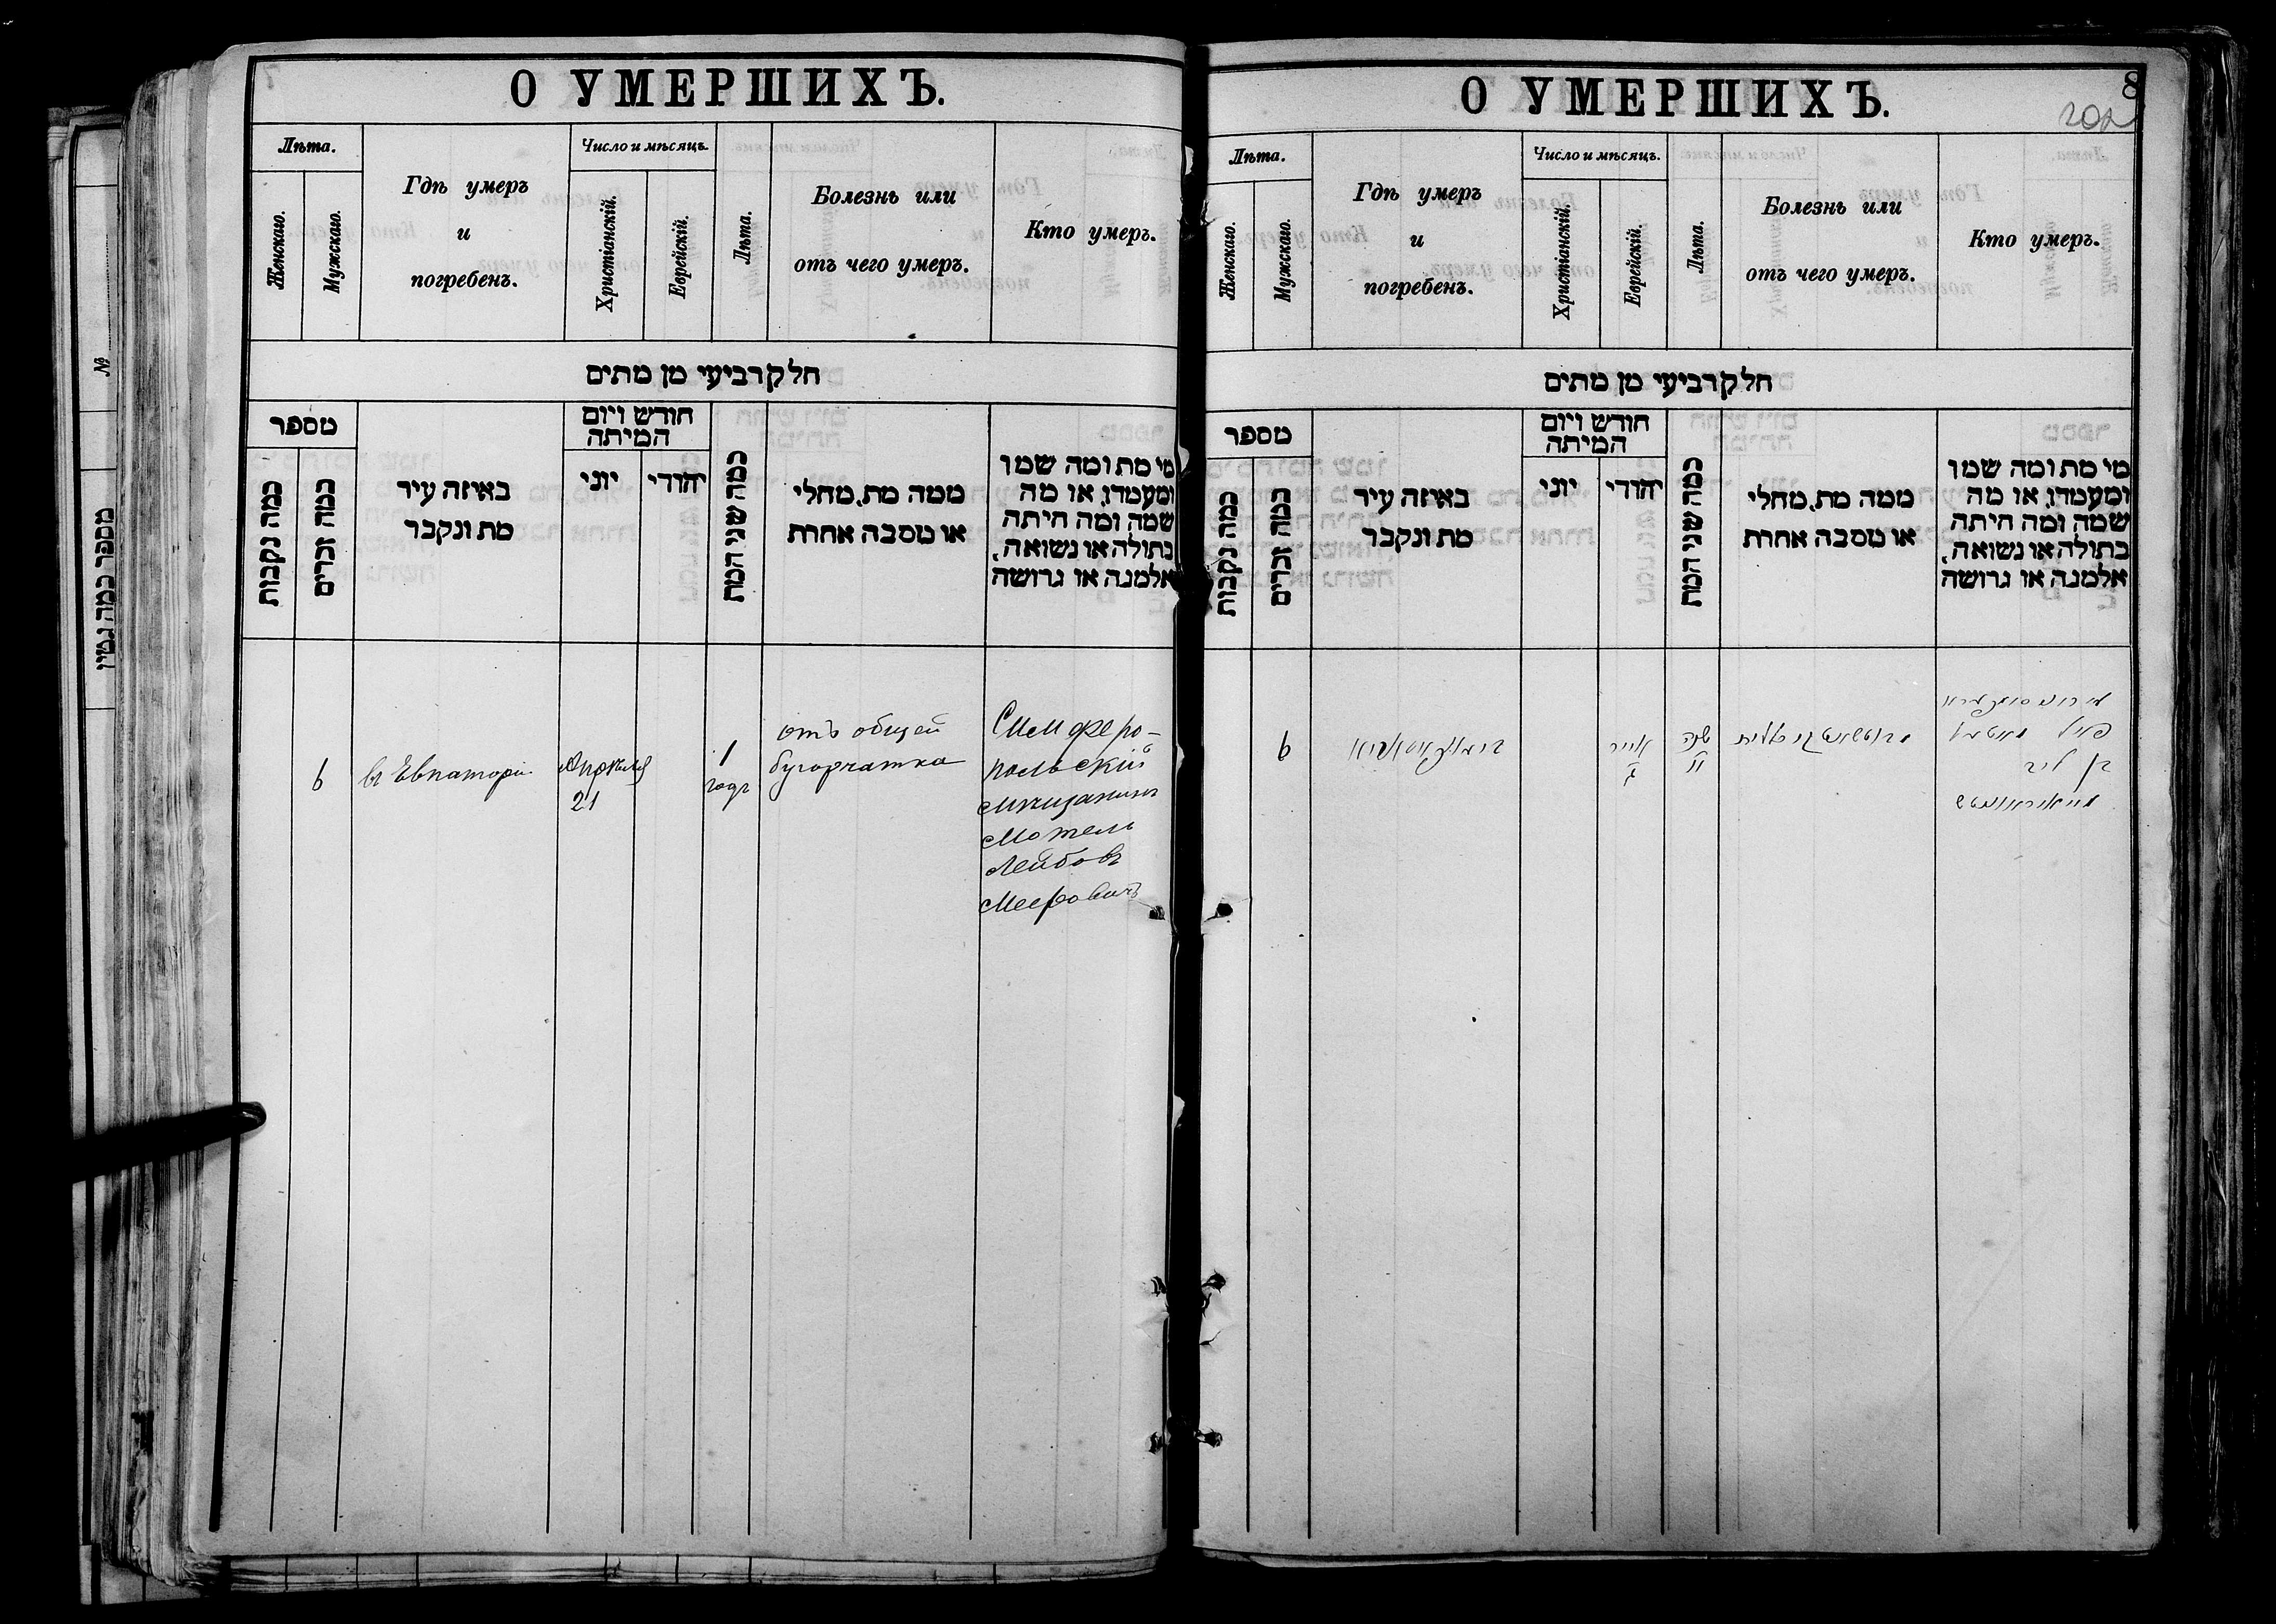 О УМЕРШИХЪ.
Лѣта.
Женскаго.
Мужскаго.
Гдѣ умеръ
и
погребенъ.
Число и мѣсяцъ.
Христіанскій.
Еврейскій.
Лѣта.
Болезнь или
отъ чего умеръ.
Кто умеръ.
חלק רביעי מן מתים
מספר
כמה נקבות
כמה זכרים
באיזה עיר
מת ונקבר
חודש ויום
המיתה
יוני
יהודי
כמה שני המת
ממה מת, מחלי
או מסבה אחרת
מי מת ומה שמו
ומעמדו, או מה
שמה ומה היתה
בתולה או נשואה,
אלמנה או גרושה
6
въ Евпаторіи
Апрѣля
21
1
годъ
отъ общей
бугорчатка
Симферо-
польскій
мѣщанинъ
Мотель
Лейбовъ
Мееровичъ
О УМЕРШИХЪ.
8
Лѣта.
Женскаго.
Мужскаго.
Гдѣ умеръ
и
погребенъ.
Число и мѣсяцъ.
Христіанскій.
Еврейскій.
Лѣта.
Болезнь или
отъ чего умеръ.
Кто умеръ.
חלק רביעי מן מתים
מספר
כמה נקבות
כמה זכרים
באיזה עיר
מת ונקבר
חודש ויום
המיתה
יוני
יהודי
כמה שני המת
ממה מת, מחלי
או מסבה אחרת
מי מת ומה שמו
ומעמדו, או מה
שמה ומה היתה
בתולה או נשואה,
אלמנה או גרושה
6
אייר
שנה
בן ליב
№
מספר כמה גטין